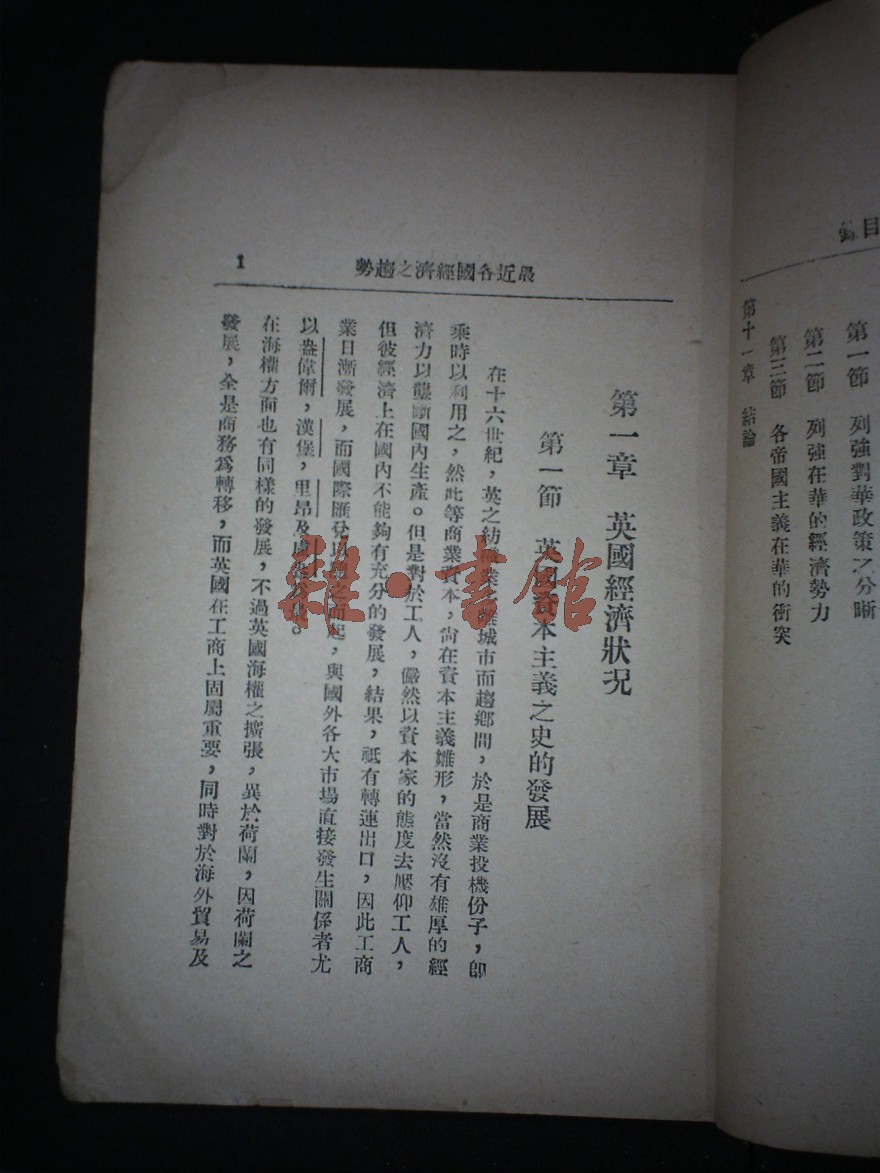 錄目
第一節 列強對華政策之分晰
第二節 列強在華的經濟勢力
第三節 各帝國主義在華的衝突
第十一章 結論
勢趨之濟經國各近最
1
第一章 英國經濟狀況
第一節 英國資本主義之史的發展
在十六世紀，英之紡織業之離城市而趨鄉間，於是商業投機份子，卽
乘時以利用之，然此等商業資本，尙在資本主義雛形，當然沒有雄厚的經
濟力以壟斷國內生產。但是對於工人，儼然以資本家的態度去壓仰工人，
但彼經濟上在國內不能夠有充分的發展，結果，祗有轉運出口，因此工商
業日漸發展，而國際匯兌以之而起，與國外各大市場直接發生關係者尤
以盎偉爾，漢堡，里昂及。
在海權方面也有同樣的發展，不過英國海權之擴張，異於荷蘭，因荷蘭之
發展，全是商務爲轉移，而英國在工商上固屬重要，同時對於海外貿易及
雜·書館